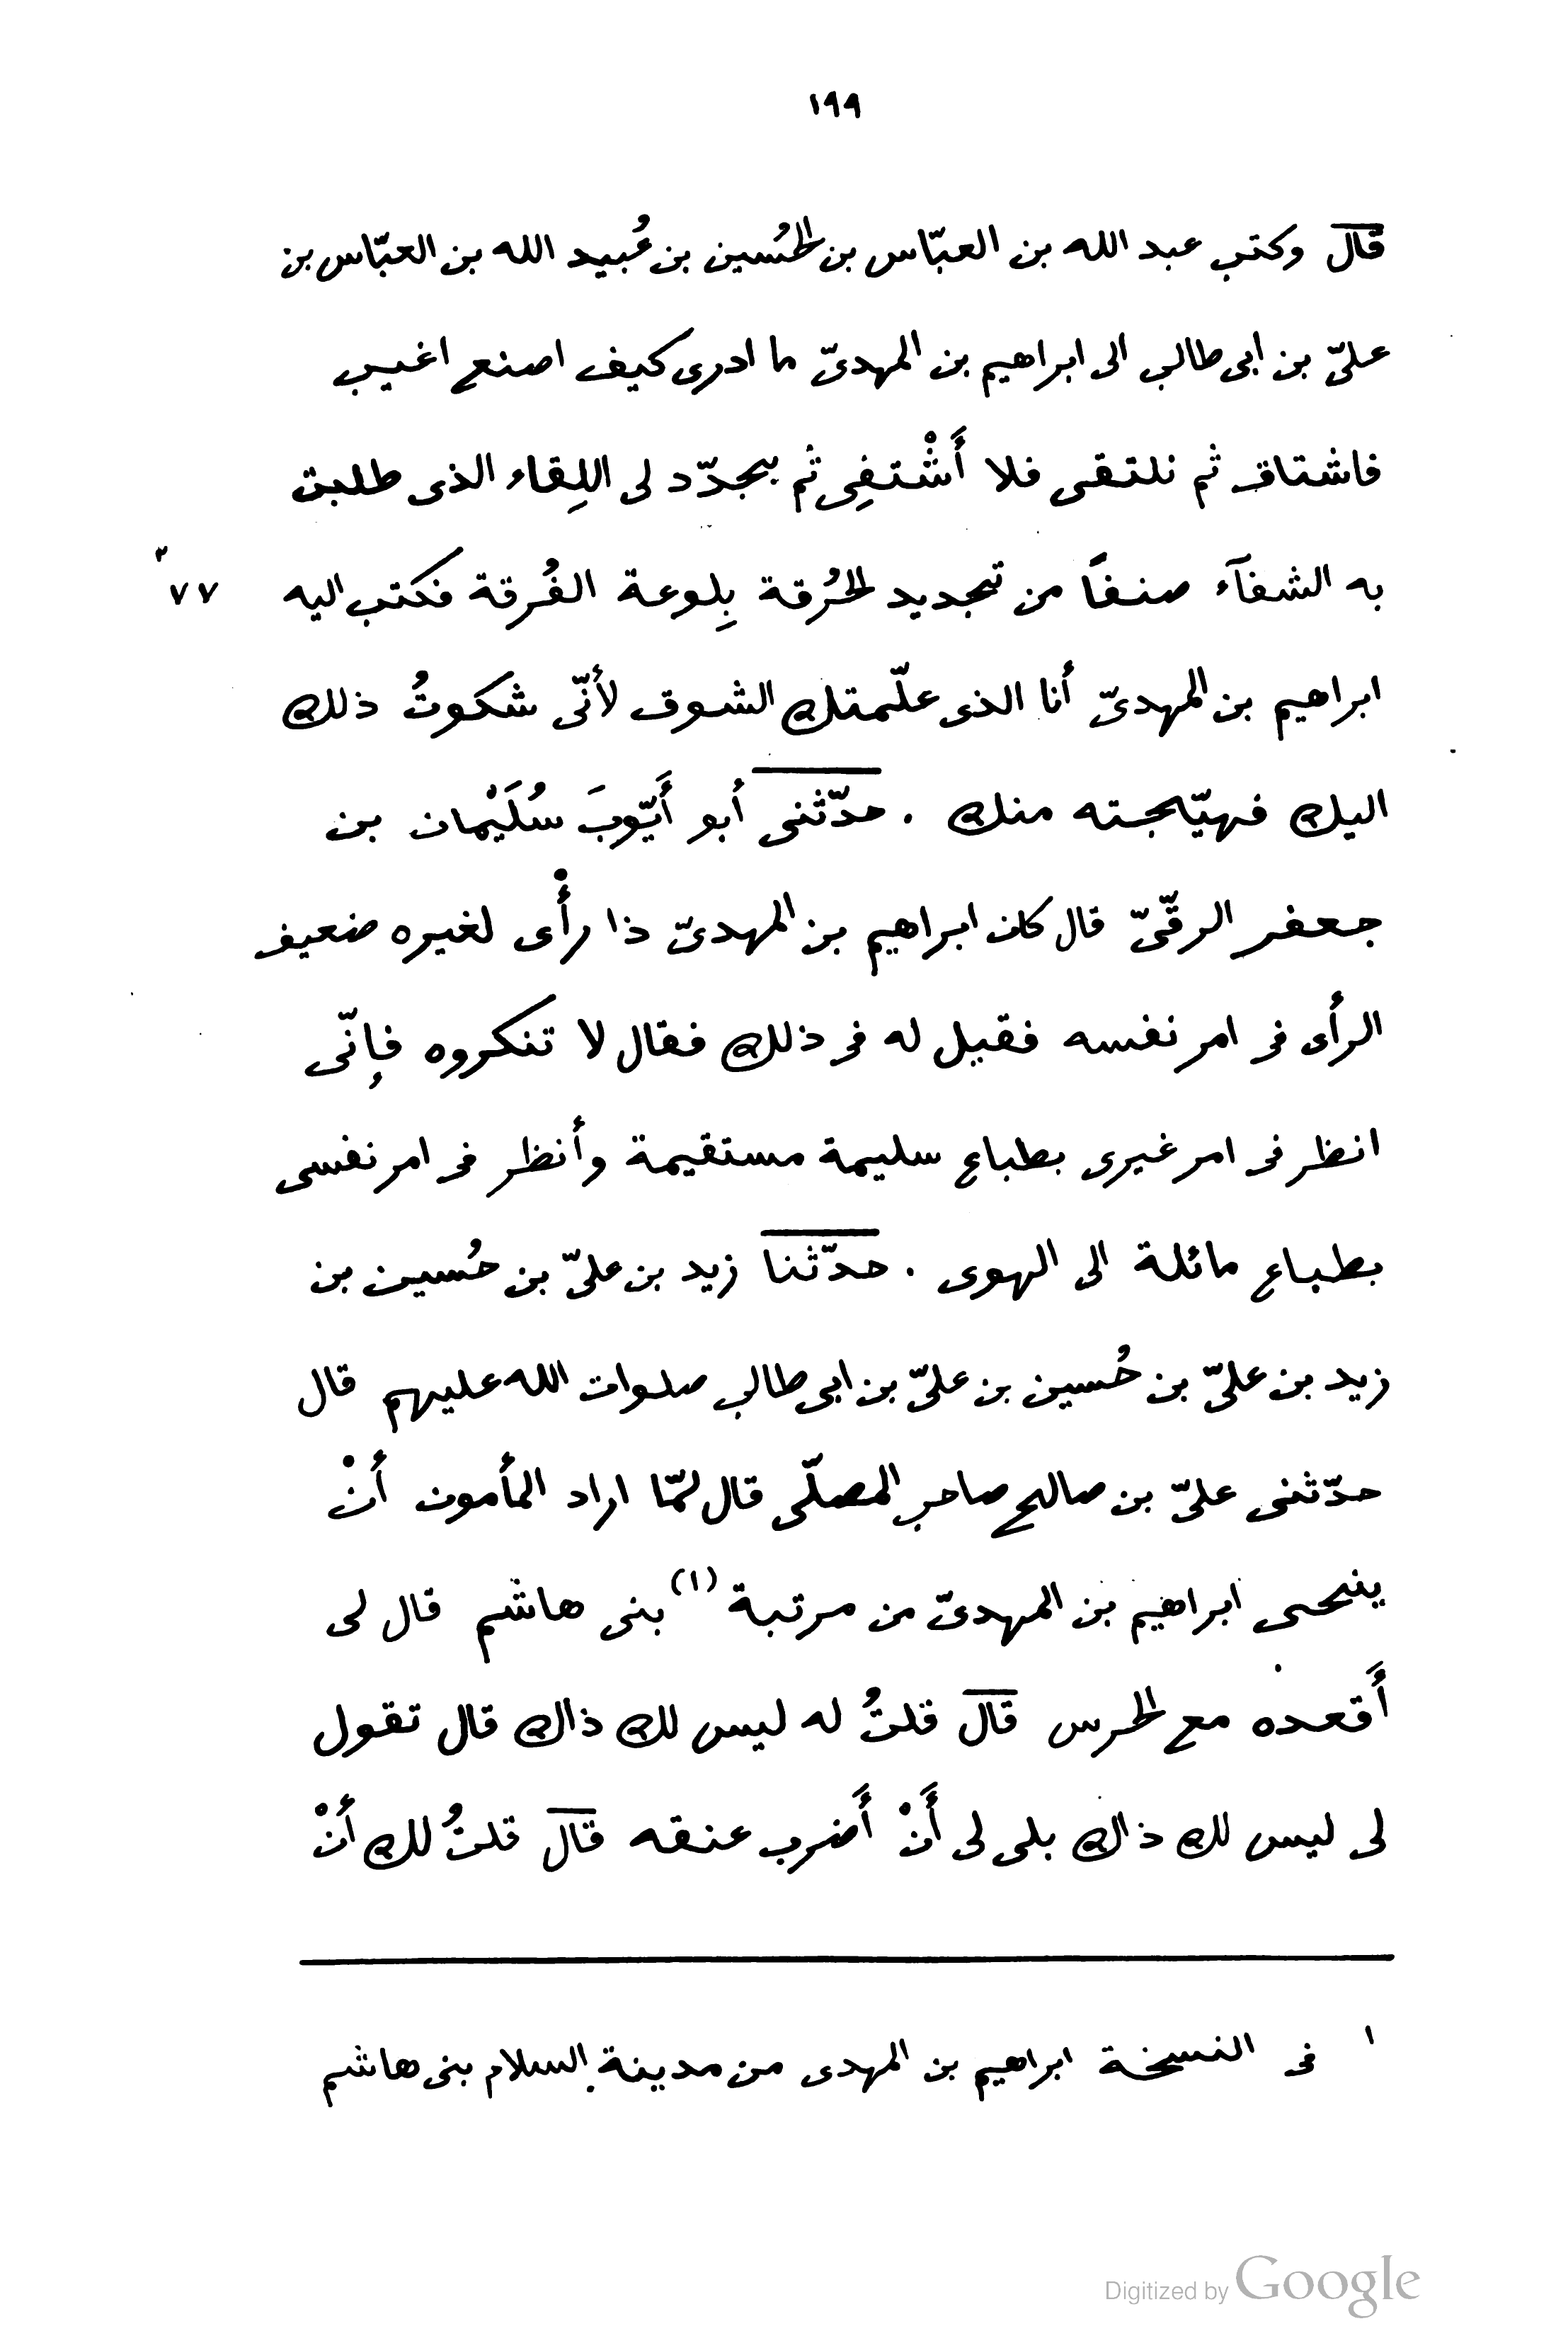 ١٩٩
قال وكتب عبد الله بن العبّاس بن الحُسين بن عُبيد الله بن العبّاس بن
علىّ بن ابى طالب الى ابراهيم بن المهدىّ ما ادرى كيف اصنع اغيب
فاشتاق ثم نلتقى فلا أَشْتفِى ثم يجدّد لى اللِقاء الذى طلبت
به الشفآء صنفًا من تجديد الحُرقة بِلوعة الفُرقة فكتب اليه ٧٧
ابراهيم بن المهدىّ أنا الذى علّمتك الشوق لأنّى شكوتُ ذلك
اليك فهيّجته منك . حدّثنى أبو أَيّوبَ سُلَيْمان بن
جعفر الرقّىّ قال كان ابراهيم بن المهدىّ ذا رأْى لغيره ضعيف
الرأى فى امر نفسه فقيل له فى ذلك فقال لا تنكروه فإنّى
انظر فى امر غيرى بطباع سليمة مستقيمة وأنظر فى امر نفسى
بطباع مائلة الى الهوى . حدّثنا زيد بن علىّ بن حُسين بن
زيد بن علىّ بن حُسين بن علىّ بن ابى طالب صلوات الله عليهم قال
حدّثنى علىّ بن صالح صاحب المصلّى قال لمّا اراد المأمون أنْ
ينحى ابراهيم بن المهدىّ من مرتبة (١) بنى هاشم قال لى
أَقعده مع الحرس قال قلتُ له ليس لك ذاك قال تقول
لى ليس لك ذاك بلى لى أَنْ أَضرب عنقه قال قلتُ لك أنْ
١ فى النسخة ابراهيم بن المهدى من مدينة السلام بنى هاشم
Digitized by Google